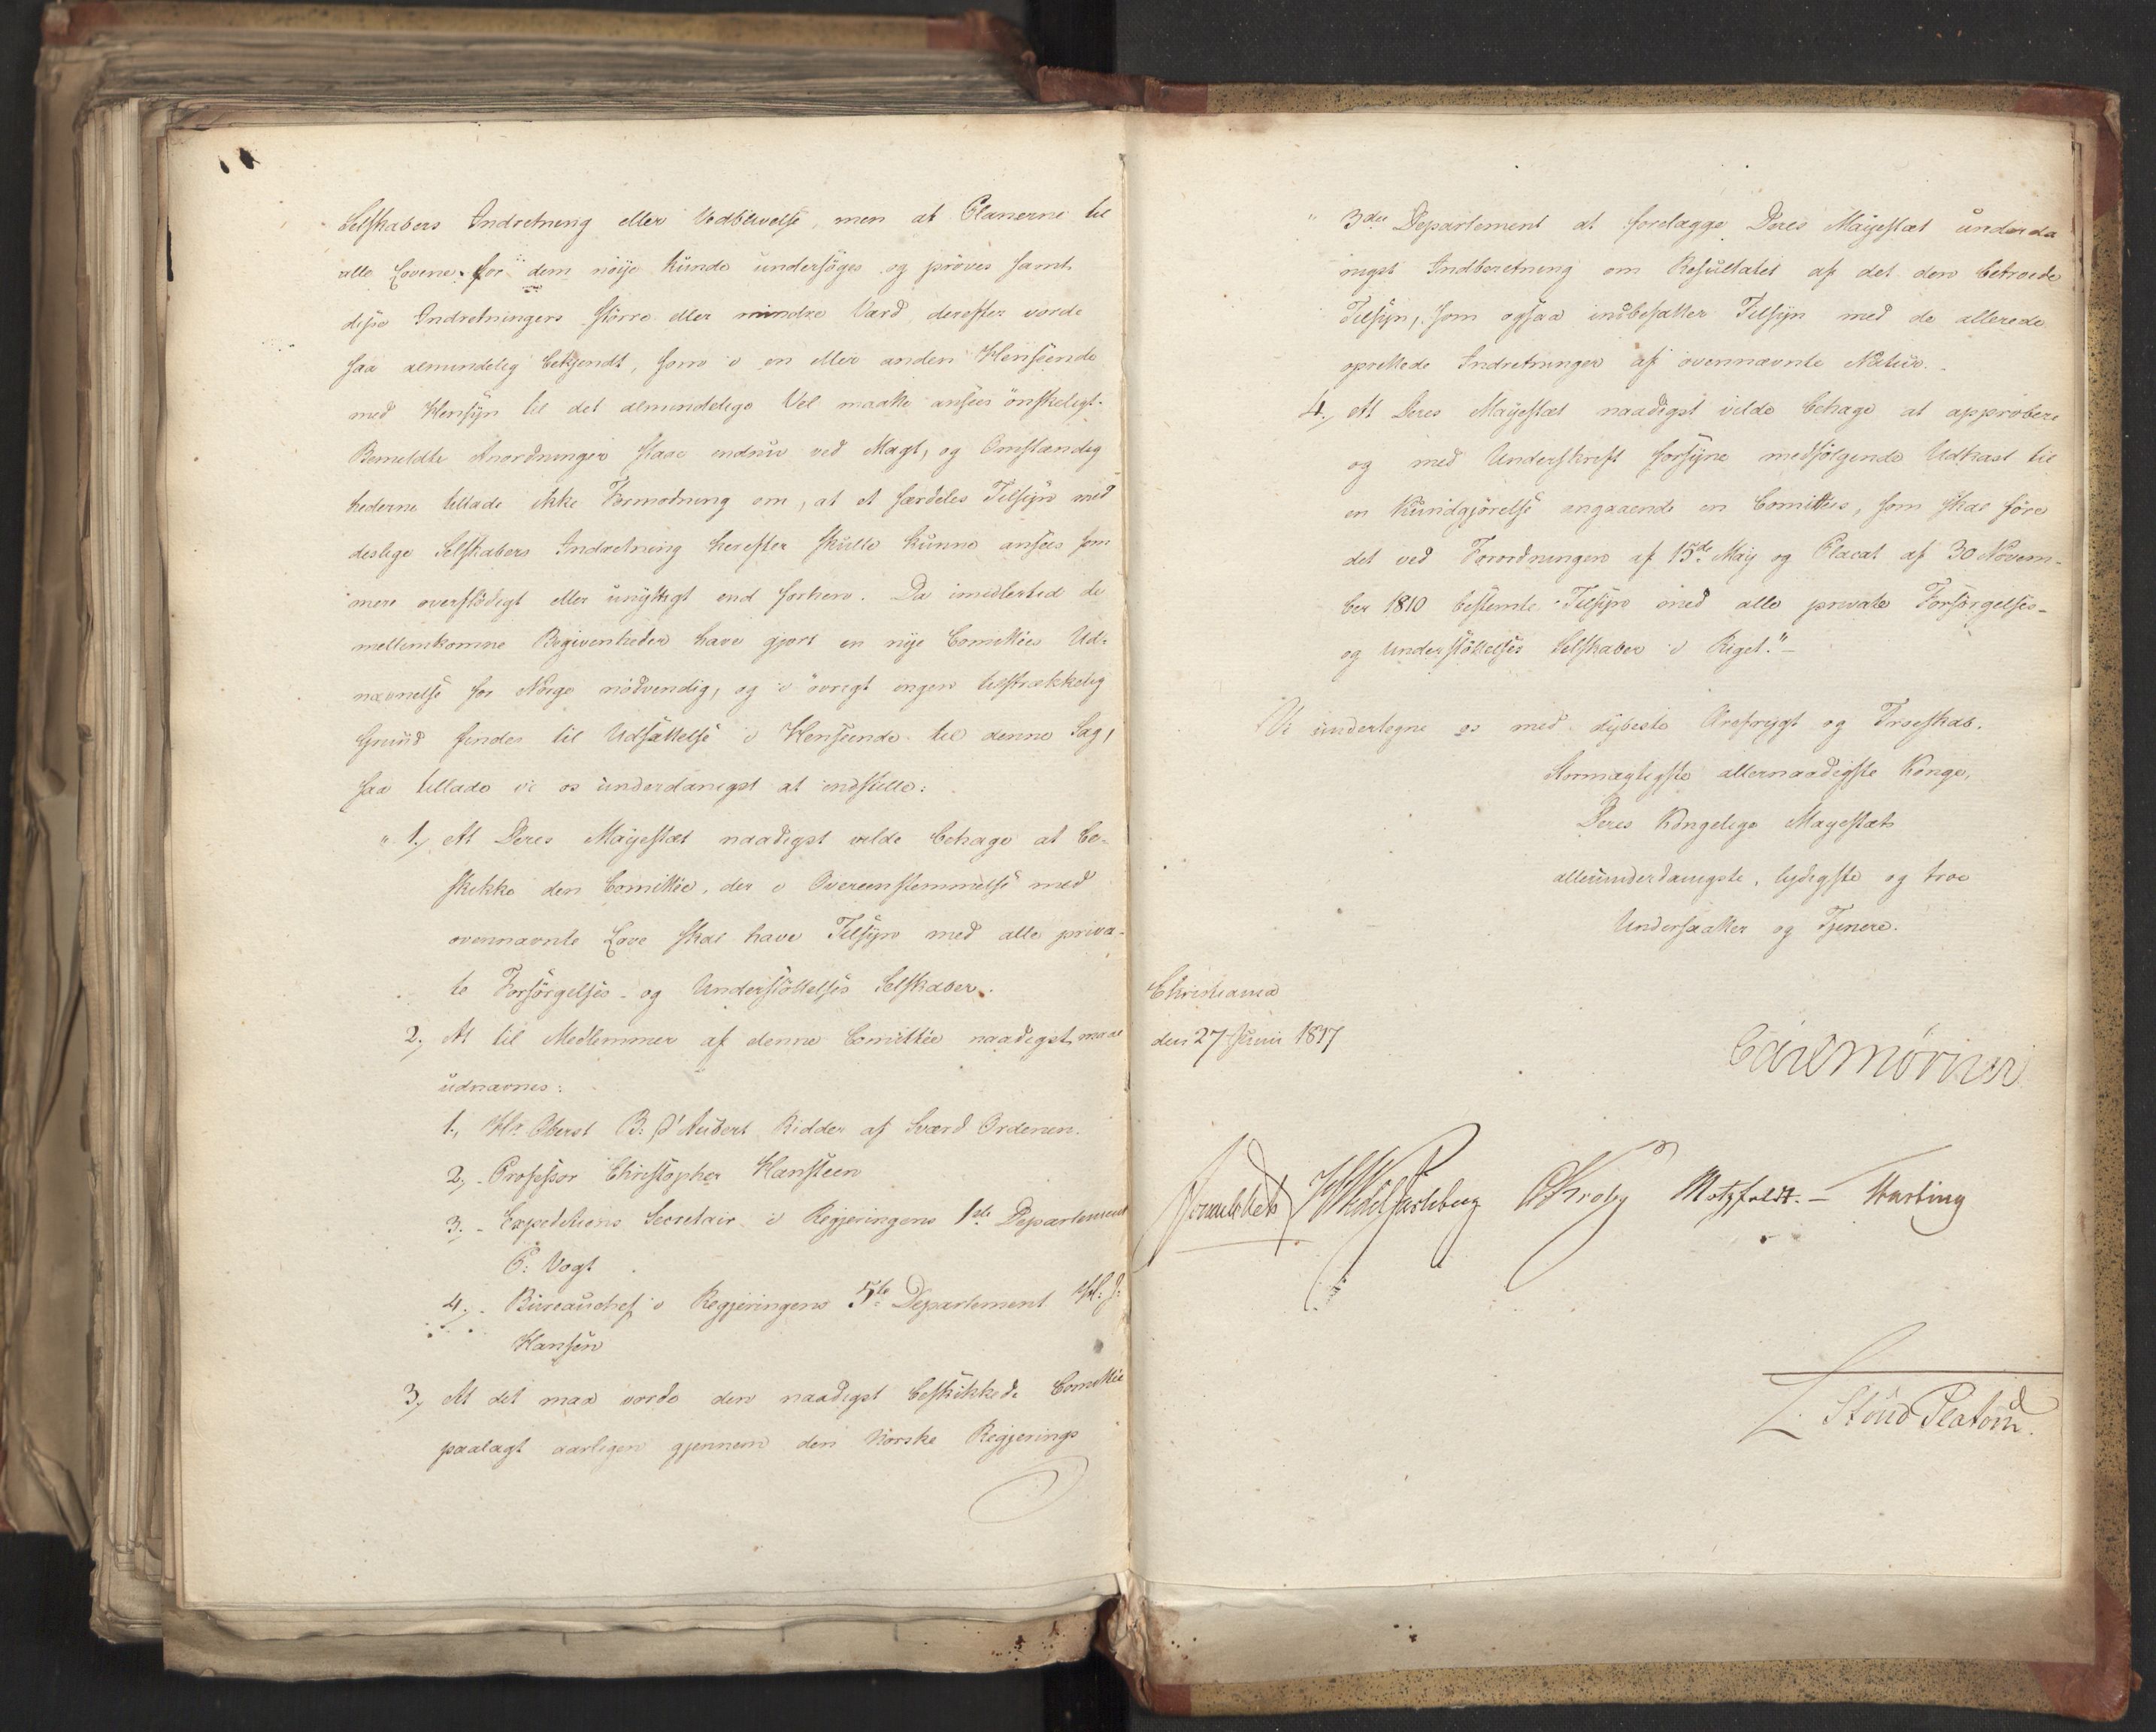 Selskabers Indretning eller Vedblivelse, men at Planerne til
alle Lovene for dem nöye kunde undersöges og pröves samt
disse Indretningers större eller mindre Værd derefter vorde
saa almindelig bekjendt, som i en eller anden Henseende
med Hensÿn til det almindelige Vel maatte ansees önskeligt.
Bemeldte Anordninger staae endnu ved Magt, og Omstændig
hederne tillade ikke Formodning om, at et særdeles Tilsÿn med
deslige Selskabers Indretning herefter skulle kunne ansees som
mere overflödigt eller unÿttigt end forhen. Da imidlertid de
mellemkomne Begivenheder have gjort en nÿe Comittées Ud-
nævnelse for Norge nödvendig, og i övrigt ingen tilstrækkelig
Grund findes til Udsættelse i Henseende til denne Sag,
saa tillade vi os underdanigst at indstille:
" 1, At Deres Mayestæt naadigst vilde behage at be-
skikke den Comittée, der i Overeensstemmelse med
ovennævnte Love skal have Tilsÿn med alle priva-
te Forsörgelses- og Understöttelses Selskaber.
2, At til Medlemmer af denne Comittée naadigst maae
udnævnes:
1, Hr. Oberst B: D'Aubert Ridder af Sværd Ordenen.
2, - Professor Christopher Hansteen
3, - Expeditions Secretair i Regjeringens 1ste Departement
P: Vogt
4, - Bureauchef i Regjeringens 5te Departement
Hansen
3, At det maa vorde den naadigst beskikkede Comittée
paalagt aarligen gjennem den Norske Regjerings
" 3die Departement at forelægge Deres Mayestæt underda
nigst Indberetning om Resultatet af det den betroede
Tilsÿn, som ogsaa indbefatter Tilsÿn med de allerede
oprettede Indretninger af ovennævnte Natur.
4, At Deres Mayestæt naadigst vilde behage at approbere
og med Underskrift forsÿne medfölgende Udkast til
en Kundgjörelse angaaende en Comittée, som skal före
det ved Forordningen af 15de Maÿ og Placat af 30 Novem-
ber 1810 bestemte Tilsÿn med alle private Forsörgelses-
og Understöttelses Selskaber i Riget."-
Vi undertegne os med dÿbeste Ærefrÿgt og Troeskab.
Stormægtigste allernaadigste Konge,
Deres Kongelige Mayestæts
allerunderdanigste, lydigste og troe
Undersaatter og Tjenere.
Christiania
den 27 Juni 1817
Carl Mörner
Sommerhielm HWedelJarlsberg CKrohg Motzfeldt. - Hasting
L. Stoud Platou.